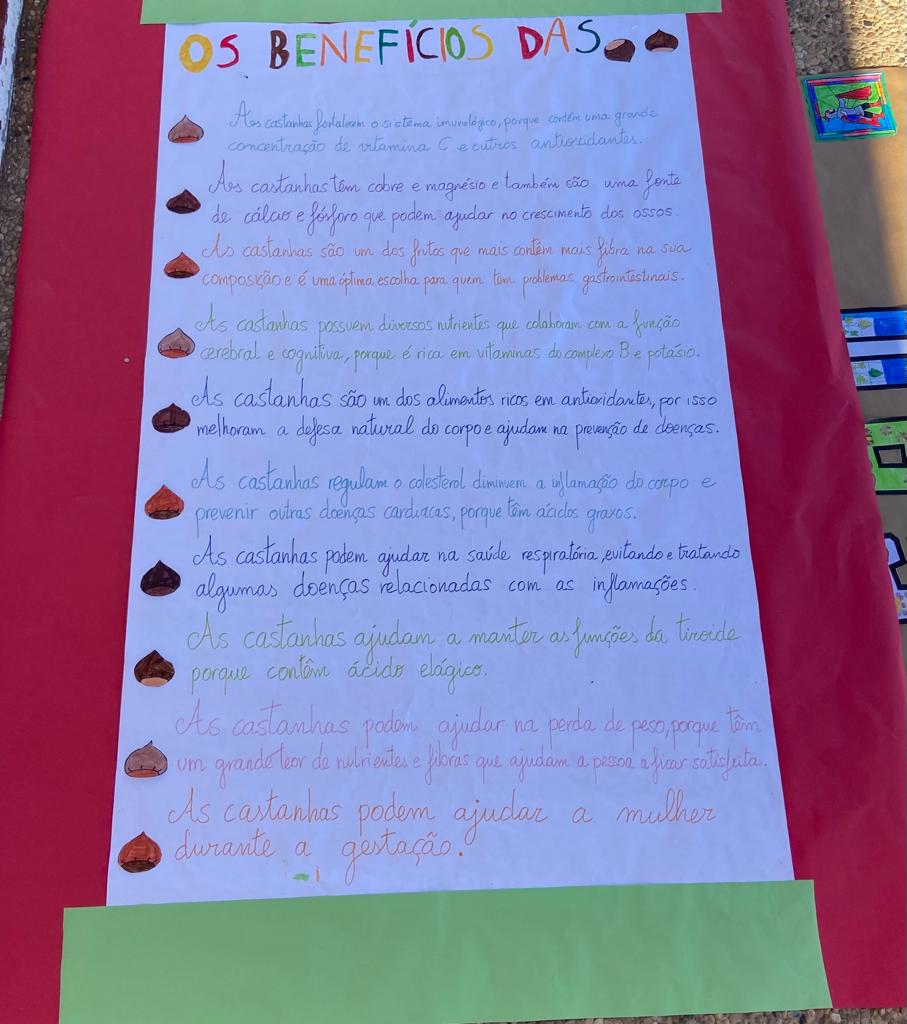 OS BENEFÍCIOS DAS
Aas castanhas fortalecem o sistema imunológico, porque contêm uma grande
concentração de vitamina C e outros antioxidantes.
As castanhas têm cobre e magnésio e também são uma fonte
de cálcio e fósforo que podem ajudar no crescimento dos ossos.
As castanhas são um dos frutos que mais contêm mais fibra na sua
composição e é uma óptima escolha para quem têm problemas gastrointestinais.
As castanhas possuem diversos nutrientes que colaboram com a função
cerebral e cognitiva, porque é rica em vitaminas do complexo B e potásio.
As castanhas são um dos alimentos ricos em antioxidantes, por isso
melhoram a defesa natural do corpo e ajudam na prevenção de doenças.
As castanhas regulam o colesterol diminuem a inflamação do corpo e
prevenir outras doenças cardíacas, porque têm ácidos graxos.
As castanhas podem ajudar na saúde respiratória, evitando e tratando
algumas doenças relacionadas com as inflamações.
As castanhas ajudam a manter as funções da tiroide
porque contêm ácido elágico.
As castanhas podem ajudar na perda de peso, porque têm
um grande teor de nutrientes e fibras que ajudam a pessoa a ficar satisfeita.
As castanhas podem ajudar a mulher
durante a gestação.